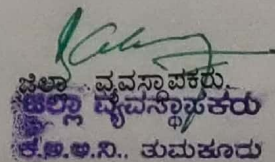 ಜಿಲ್ಲಾ ವ್ಯವಸ್ಥಾಪಕರು.
ಜಿಲ್ಲಾ ವ್ಯವಸ್ಥಾಪಕರು
ಕ.ಆ.ಅ.ನಿ., ತುಮಕೂರು